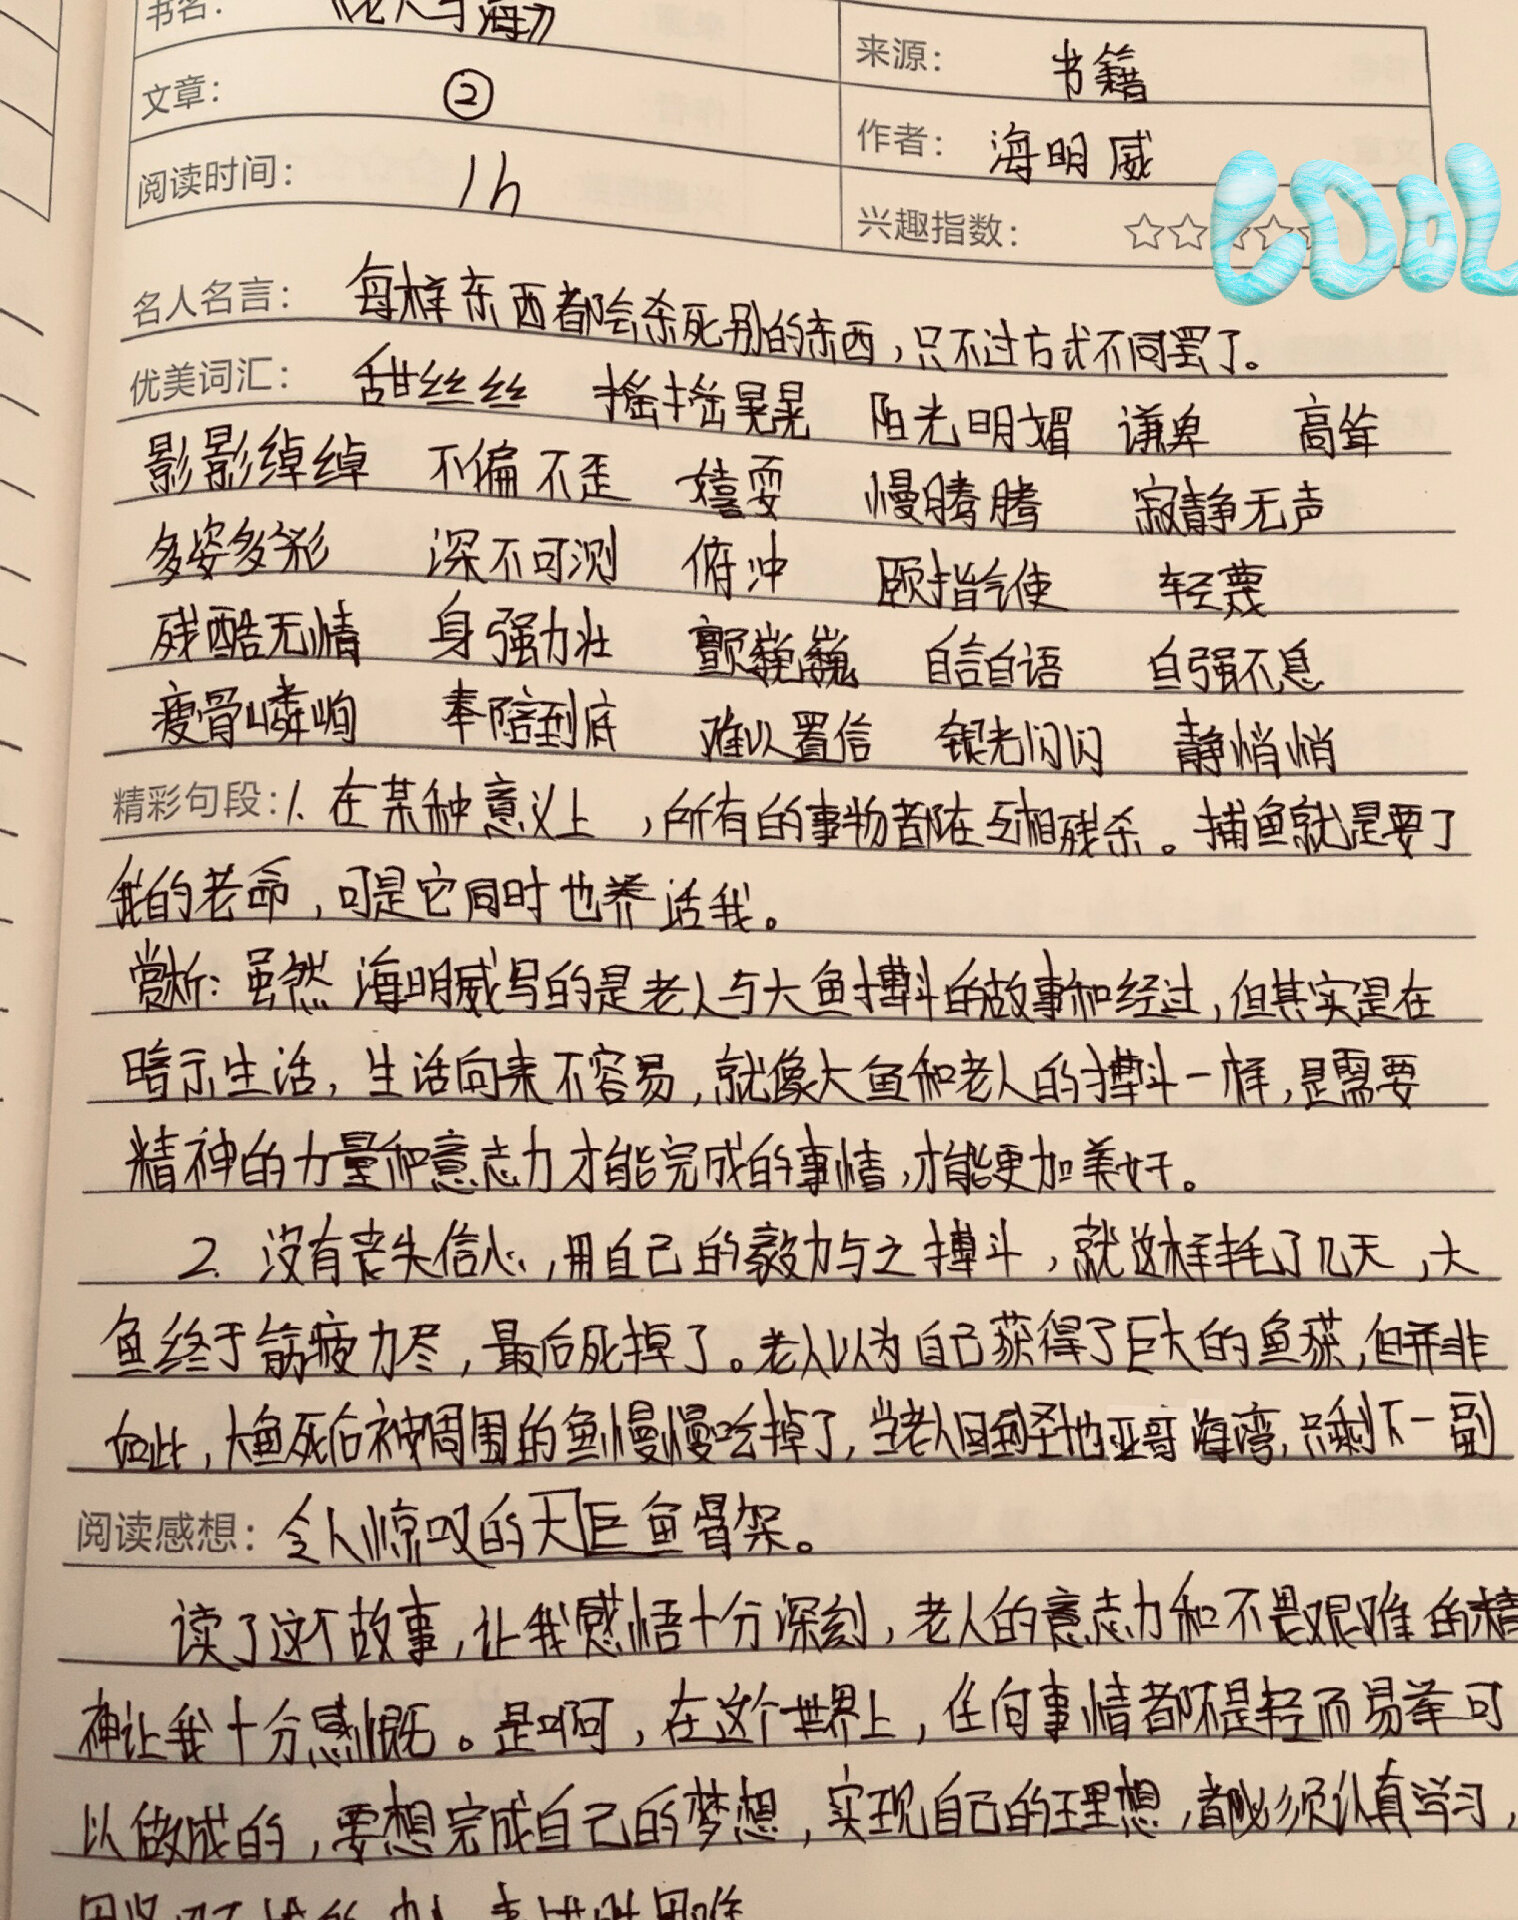 书名：《老人与海》
来源：书籍
文章：②
作者：海明威
阅读时间：1h
兴趣指数：☆☆☆☆
COOL
名人名言：每样东西都会杀死别的东西，只不过方式不同罢了。
优美词汇：甜丝丝 摇摇晃晃 阳光明媚 谦卑 高耸
影影绰绰 不偏不歪 嬉耍 慢腾腾 寂静无声
多姿多彩 深不可测 俯冲 颐指气使 轻蔑
残酷无情 身强力壮 颤巍巍 自言自语 自强不息
瘦骨嶙峋 奉陪到底 难以置信 银光闪闪 静悄悄
精彩句段：1. 在某种意义上，所有的事物都在互相残杀。捕鱼就是要了
我的老命，可是它同时也养活我。
赏析：虽然海明威写的是老人与大鱼搏斗的故事和经过，但其实是在
暗示生活，生活向来不容易，就像大鱼和老人的搏斗一样，是需要
精神的力量和意志力才能完成的事情，才能更加美好。
2. 没有丧失信心，用自己的毅力与之搏斗，就这样耗了几天，大
鱼终于筋疲力尽，最后死掉了。老人以为自己获得了巨大的鱼获，但并非
如此，大鱼死后被周围的鱼慢慢吃掉了，当老人回到圣地亚哥海湾，只剩下一副
阅读感想：令人惊叹的天巨鱼骨架。
读了这个故事，让我感悟十分深刻，老人的意志力和不畏艰难的精
神让我十分感慨。是啊，在这个世界上，任何事情都不是轻而易举可
以做成的，要想完成自己的梦想，实现自己的理想，都必须认真学习，